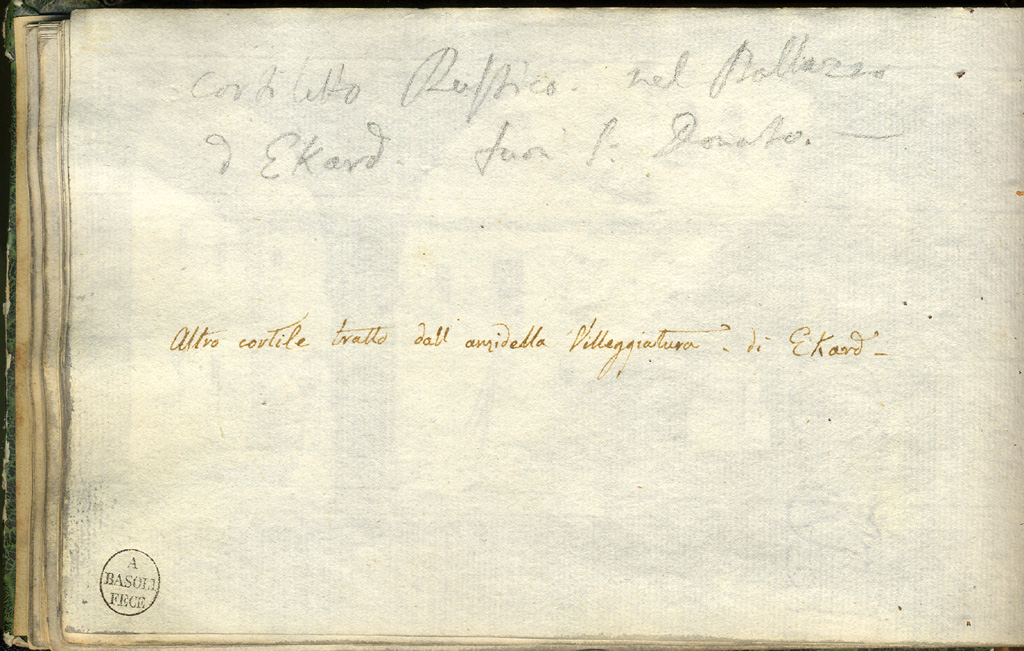 cortiletto Rustico. nel Pallazzo
d Ekard. fuori S: Donato. —
Altro cortile tratto dall anzidetta Villeggiatura. di Ekard -
A
BASOLI
FECE